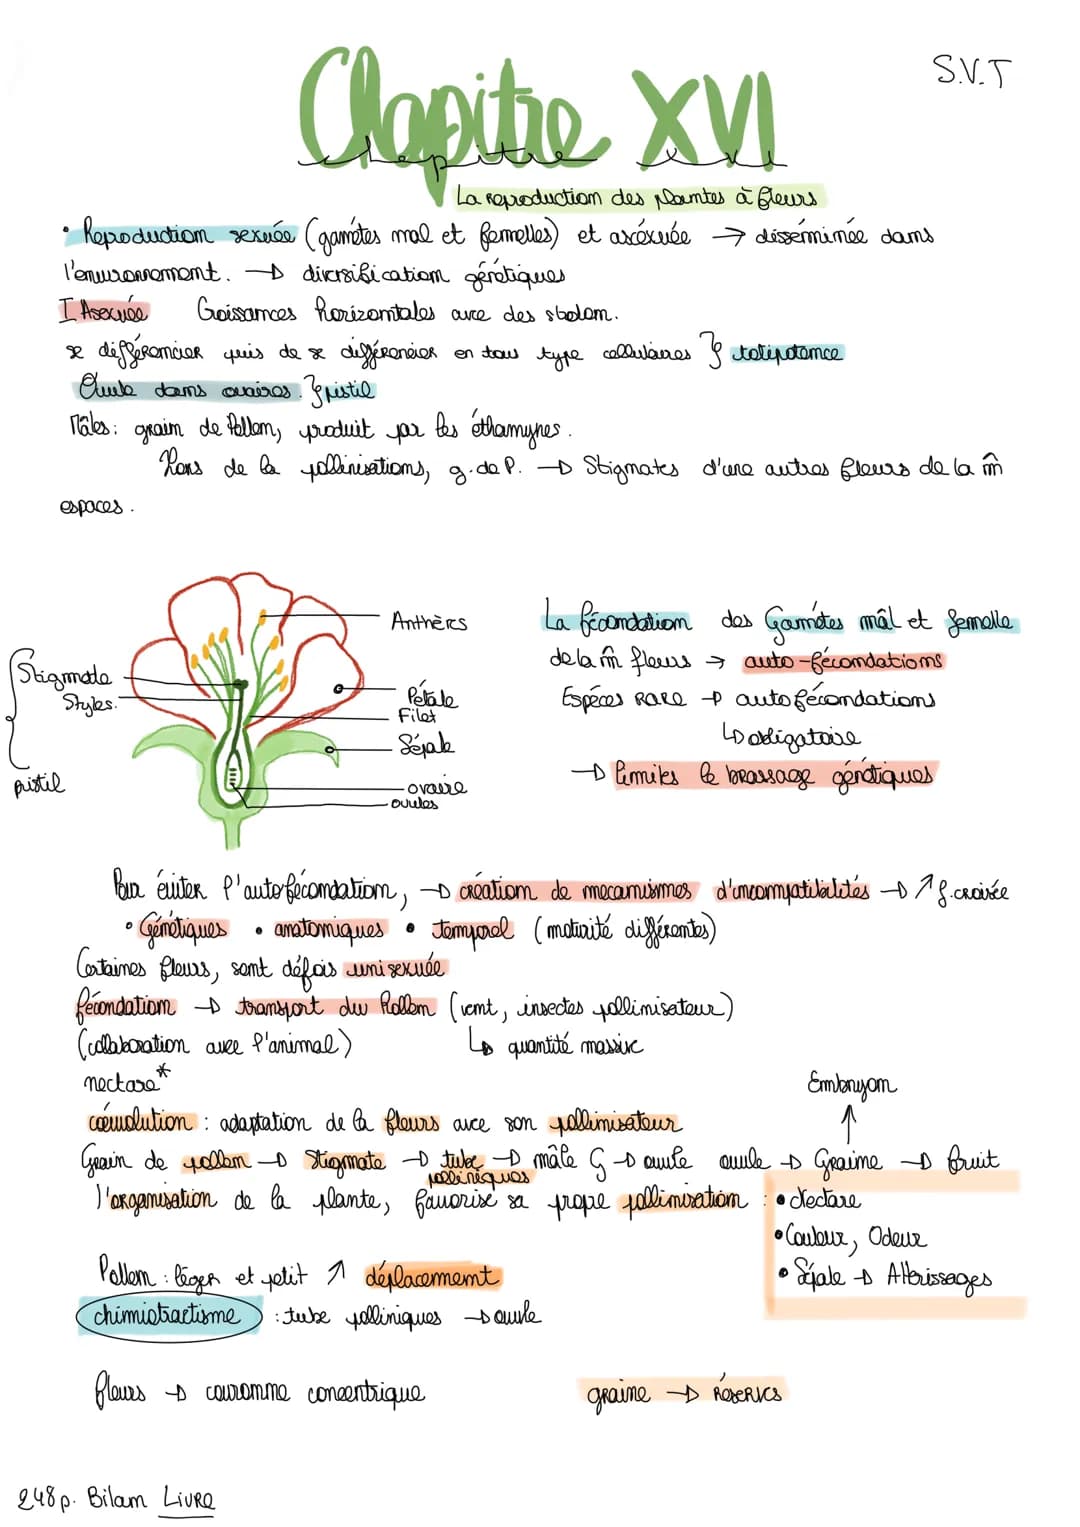 S.V.T
Chapitre XVI
chapitre xvi
La reproduction des plantes à fleurs
• Reproduction sexuée (gamétes mal et femelles) et aséxuée → disséminée dans
l'environnement. → diversification génétiques
I Asexuée Croissances horizontales avec des stolon.
se différencier puis de se différencier en tous type cellulaires } totipotence
Ovule dans ovaires. } pistil
Mâles: grain de Pollen, produit par les éthamynes.
Lors de la pollinisations, g. de P. → Stigmates d'une autres fleurs de la m̂
espaces.
Anthèrs
Stigmate
Styles.
pistil
Pétale
Filet
Sépale
ovaire
ovules
La fécondation des Gamétes mâl et femelle
de la m̂ fleurs → auto-fécondations
Espéces RARE → autofécondations
↳ obligatoire
→ limites le brassage génétiques
Pour éviter l'autofécondation, → création de mecanismes d'incompatibilités → ↗ f. croisée
• Génétiques • anatomiques • temporel (maturité différentes)
Certaines fleurs, sont défois unisexuée
fécondation → transport du Pollen (vent, insectes pollinisateur)
(collaboration avec l'animal) ↳ quantité massive
nectare*
Embryon
↑
coévolution : adaptation de la fleurs avec son pollinisateur
Grain de pollen → Stigmate → tube polliniques → mâle G → ovule ovule → Graine → fruit
l'organisation de la plante, favorise sa propre pollinisation : • Nectare
• Couleur, Odeur
• Sépale → Atterissages
Pollen : léger et petit ↗ déplacement
chimiotractisme : tube polliniques → ovule
fleurs → couronne concentrique
graine → réserves
248p. Bilan Livre